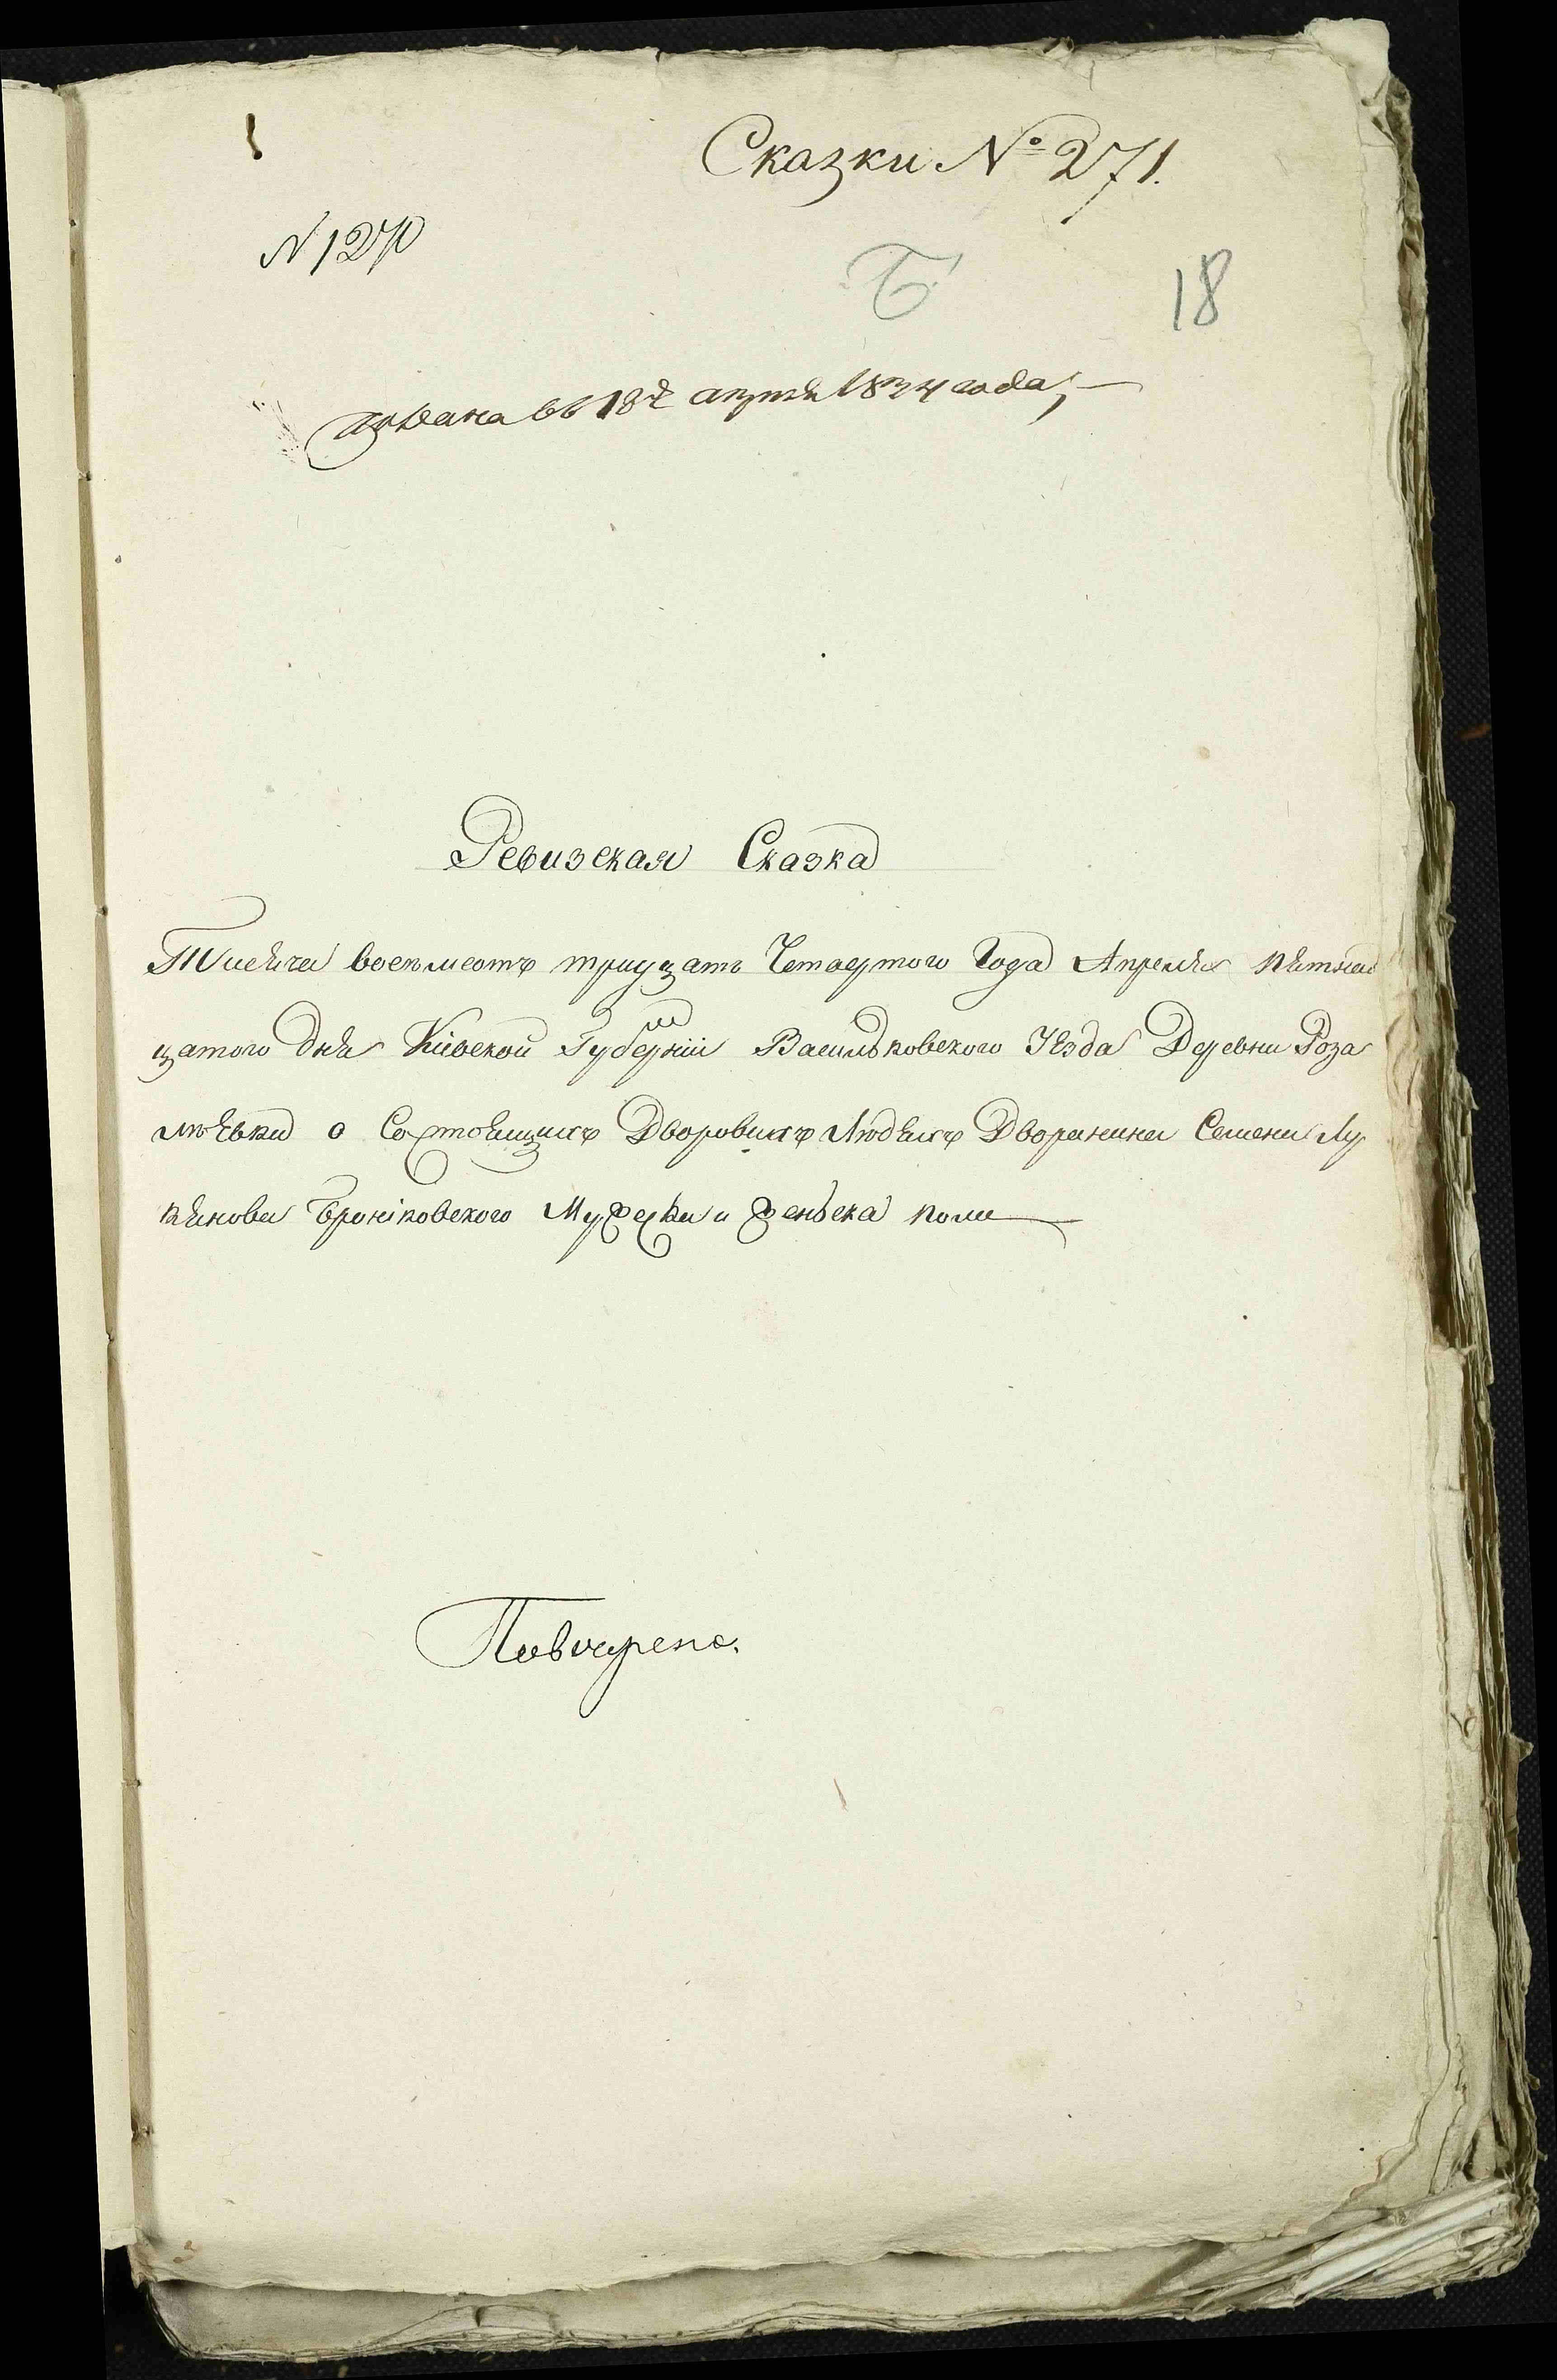 Сказки № 271.
N 1270
Б
18
подана въ 18 д. апреля 1834 года
Ревизская Сказка
Тисяча восемсотъ тридцать Четвертого Года Апреля пятнад
цатого дня Кіевской Губерніи Васильковского Уезда Деревни Роза
лѣевки о Состоящихъ Дворовихъ Людяхъ Дворянина Семена Лу
кянова Броніковского Мужеска и женьска пола